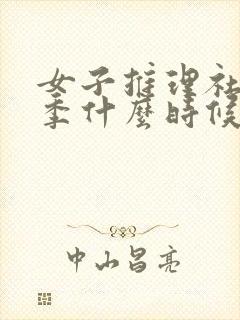 女子推理社
季什麼時候
中山昌亮